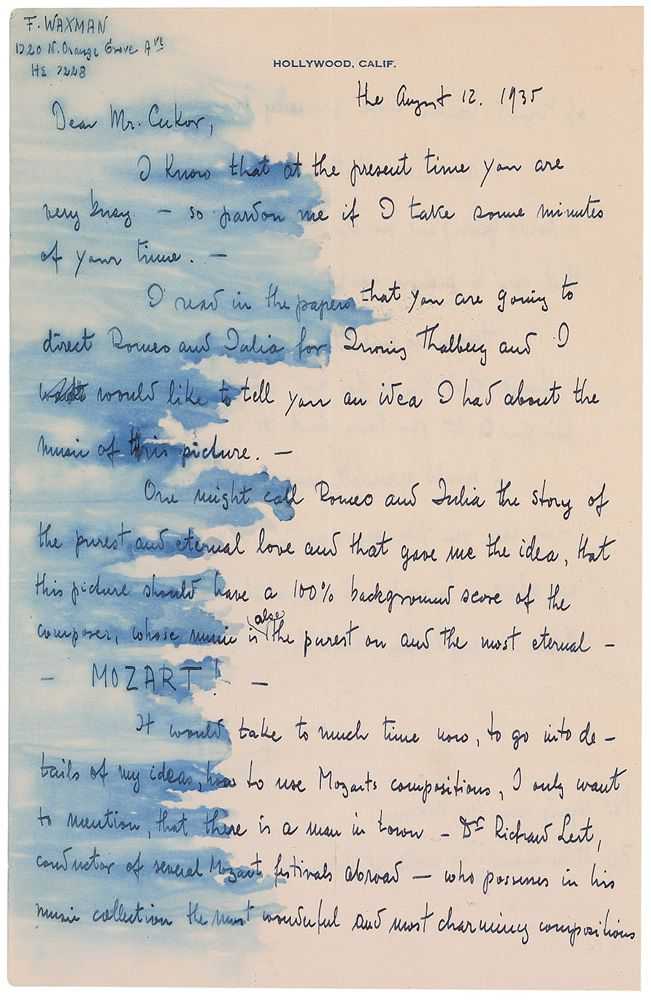 F. WAXMAN
1320 N. Orange Grove Ave
HE 7228
HOLLYWOOD, CALIF.
the August 12. 1935
Dear Mr. Cukor,
I know that at the present time you are
very busy – so pardon me if I take some minutes
of your time. –
I read in the papers that you are going to
direct Romeo and Julia for Irving Thalberg and I
would like to tell you an idea I had about the
music of this picture. –
One might call Romeo and Julia the story of
the purest and eternal love and that gave me the idea, that
this picture should have a 100% background score of the
composer, whose music is also the purest on and the most eternal –
– MOZART! –
It would take to much time now, to go into de-
tails of my ideas, how to use Mozarts compositions, I only want
to mention, that there is a man in town – Dr Richard Lert,
conductor of several Mozart festivals abroad – who possesses in his
music collection the most wonderful and most charming compositions